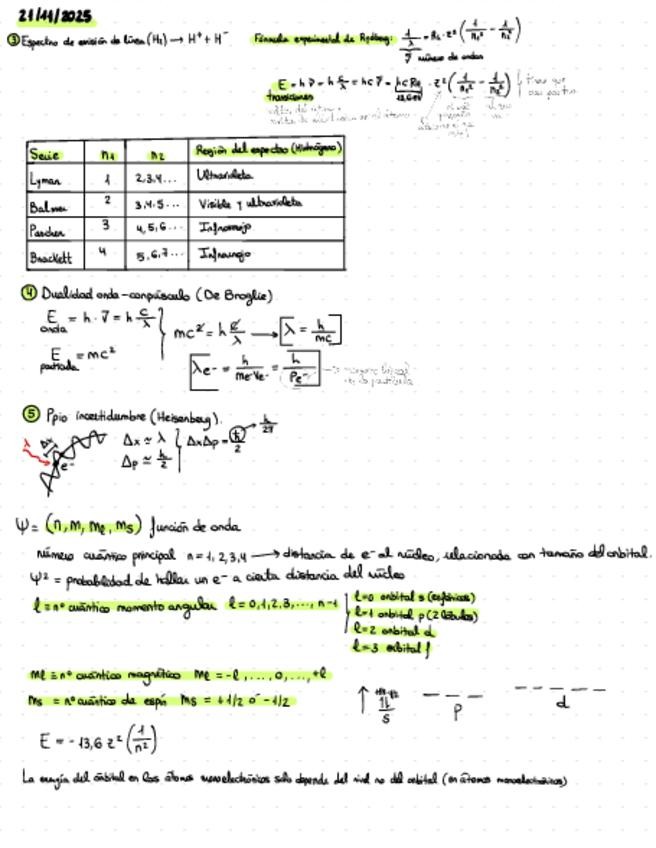 21/11/2025
③ Espectro de emisión de línea (H₂) → H⁺ + H⁻
Fórmula experimental de Rydberg: 1/λ = R∞ · z² (1/n₁² - 1/n₂²)
ν̄ número de ondas
E = h ν̄ = h c/λ = h c ν̄ = h c R∞ · z² (1/n₁² - 1/n₂²)
transiciones
13,6 eV
Serie n₁ n₂ Región del espectro (Hidrógeno)
Lyman 1 2,3,4... Ultravioleta
Balmer 2 3,4,5... Visible y ultravioleta
Paschen 3 4,5,6... Infrarrojo
Brackett 4 5,6,7... Infrarrojo
④ Dualidad onda-corpúsculo (De Broglie)
E onda = h · ν̄ = h c/λ
E partícula = mc²
mc² = h c/λ → λ = h/mc
λe⁻ = h/(me⁻ve⁻) = h/Pe⁻
⑤ Ppio incertidumbre (Heisenberg).
λ Δx e⁻
Δx ≃ λ
Δp ≃ h/2
ΔxΔp = ħ/2 → h/2π
Ψ = (n, m, mℓ, ms) función de onda
número cuántico principal n = 1, 2, 3, 4 → distancia de e⁻ al núcleo, relacionada con tamaño del orbital.
Ψ² = probabilidad de hallar un e⁻ a cierta distancia del núcleo
ℓ ≡ nº cuántico momento angular ℓ = 0, 1, 2, 3, ..., n-1
ℓ=0 orbital s (esféricos)
ℓ=1 orbital p (2 lóbulos)
ℓ=2 orbital d
ℓ=3 orbital f
mℓ ≡ nº cuántico magnético mℓ = -ℓ, ..., 0, ..., +ℓ
ms = nº cuántico de espín ms = +1/2 ó -1/2
s p d
E = -13,6 z² (1/n²)
La energía del orbital en los átomos monoelectrónicos solo depende del nivel no del orbital (en átomos monoelectrónicos)